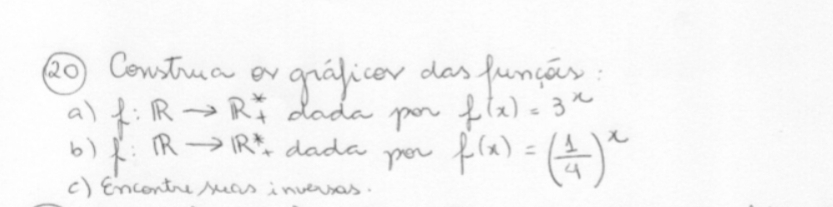 20 Construa os gráficos das funções:
a) f: ℝ → ℝ₊* dada por f(x) = 3ˣ
b) f: ℝ → ℝ₊* dada por f(x) = (1/4)ˣ
c) Encontre suas inversas.